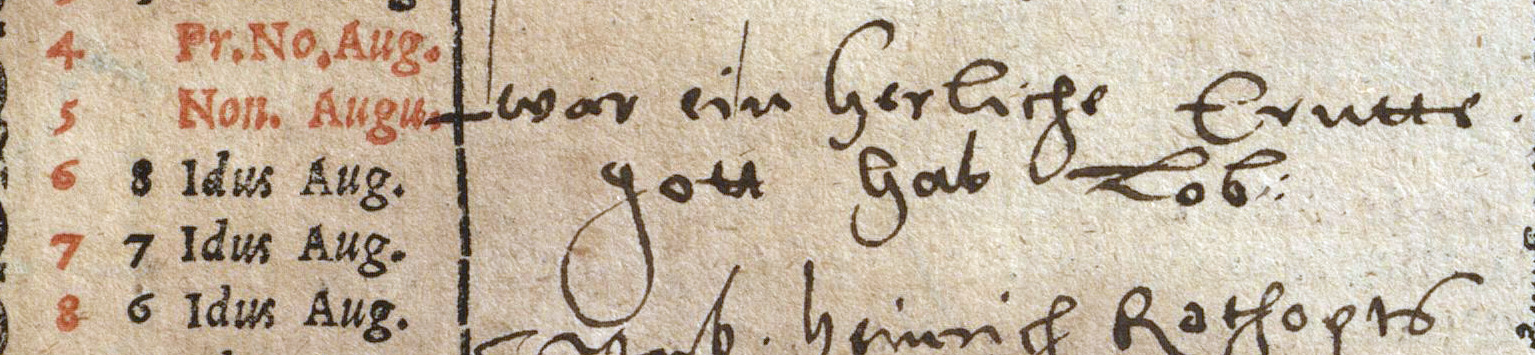 4 Pr.No.Aug.
5 Non. Augu. war ein herliche Erntte.
6 8 Idus Aug. gott hab Lob:
7 7 Idus Aug.
8 6 Idus Aug. heinrich